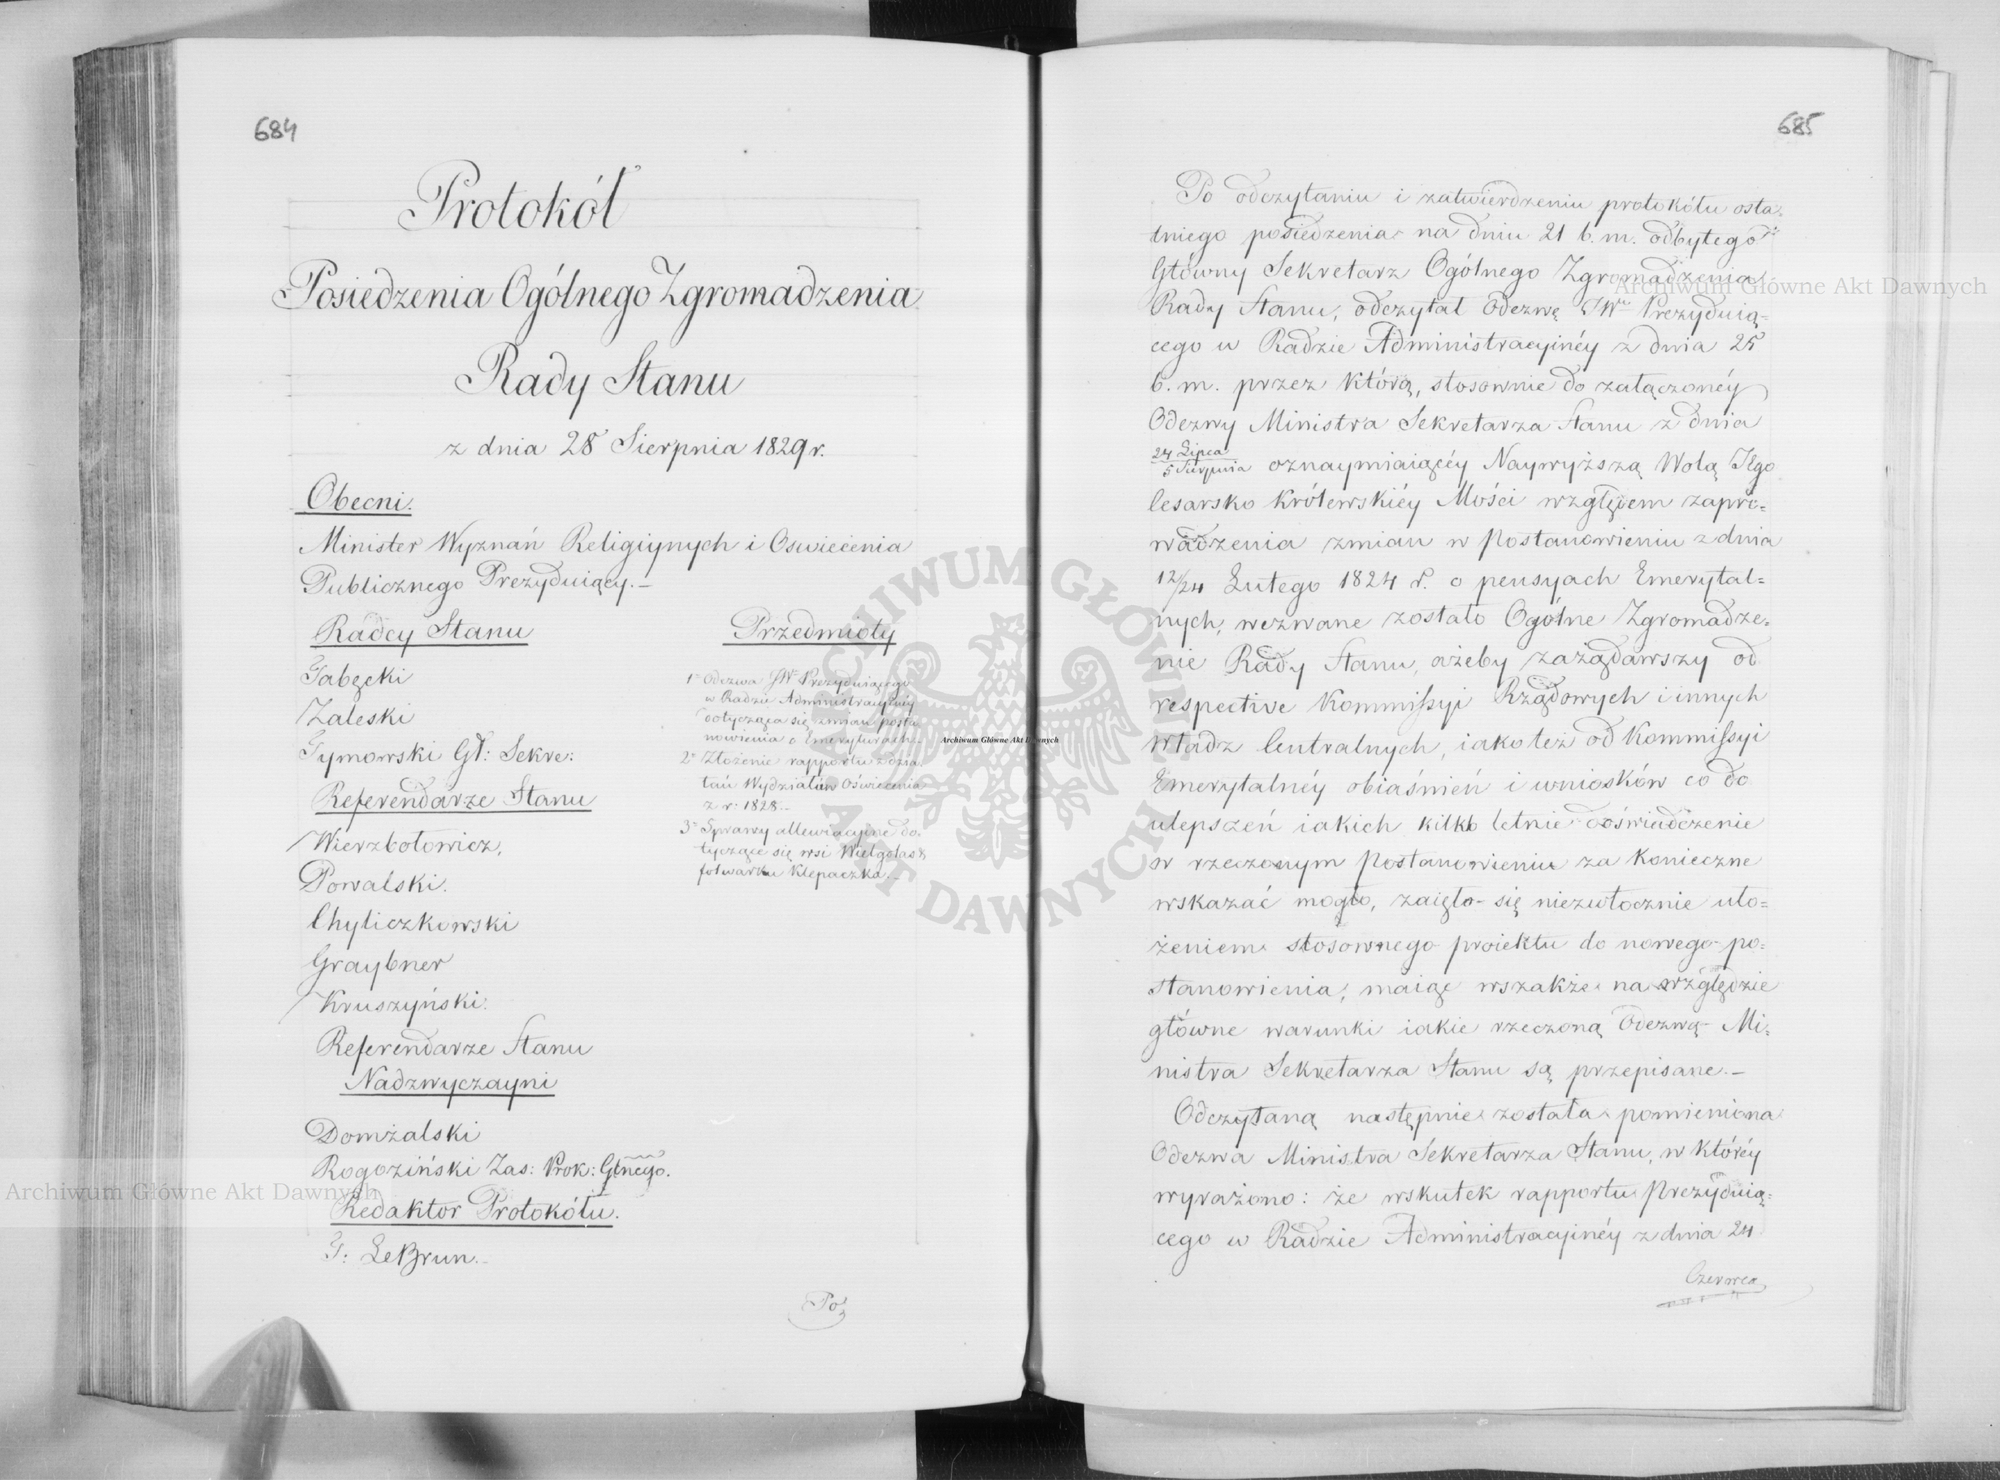 684
Protokół
Posiedzenia Ogólnego Zgromadzenia
Rady Stanu
z dnia 28 Sierpnia 1829 r.
Obecni.
Minister Wyznań Religiynych i Oswiecenia
Publicznego Prezyduiący.—
Radcy Stanu
Tabęcki
Zaleski
Tymowski Gł: Sekre:
Referendarze Stanu
Wierzbołowicz,
Powalski.
Chyliczkowski
Graybner
Kruszyński.
Referendarze Stanu
Nadzwyczayni
Domżalski
Rogoziński Zas: Prok: Głnego.
Redaktor Protokółu.
T: LeBrun.—
Przedmioty
1º Odezwa JWº Prezyduiącego
w Radzie Administracyiney
dotycząca się zmian posta
nowienia o Emeryturach.—
2º Złożenie rapportu z dzia
łań Wydziałów Oświecenia
z r: 1828.—
3º Sprawy allewiacyine do=
tyczące się wsi Wielgolas &
folwarku Klepaczka.—
Po
685
Po odczytaniu i zatwierdzeniu protokółu osta=
tniego posiedzenia na dniu 21 b. m. odbytego
Główny Sekretarz Ogólnego Zgromadzenia
Rady Stanu, odczytał Odezwę JWº Prezyduią=
cego w Radzie Administracyinéy z dnia 25
b. m. przez którą, stosownie do załączonéy
Odezwy Ministra Sekretarza Stanu z dnia
24 Lipca
5 Sierpnia oznaymiaiącéy Naywyższą Wolą JEgo
Cesarsko Królewskiéy Mości względem zapro=
wadzenia zmian w Postanowieniu z dnia
12/24 Lutego 1824 r. o pensyach Emerytal=
nych, wezwane zostało Ogólne Zgromadze=
nie Rady Stanu, ażeby zażądawszy od
respective Kommissyi Rządowych i innych
Władz Centralnych, iako też od Kommissyi
Emerytalnéy obiaśnień i wniosków co do
ulepszeń iakich kilko letnie doświadczenie
w rzeczonym Postanowieniu za konieczne
wskazać mogło, zaięło się niezwłocznie uło=
żeniem stosownego proiektu do nowego po=
stanowienia, maiąc wszakże na względzie
główne warunki iakie rzeczoną Odezwą Mi=
nistra Sekretarza Stanu są przepisane.—
Odczytaną następnie została pomieniona
Odezwa Ministra Sekretarza Stanu, w któréy
wyrażono: że wskutek rapportu Prezyduią=
cego w Radzie Administracyinéy z dnia 24
Czerwca
Archiwum Główne Akt Dawnych
Archiwum Główne Akt Dawnych
Archiwum Główne Akt Dawnych
ARCHIWUM GŁÓWNE AKT DAWNYCH